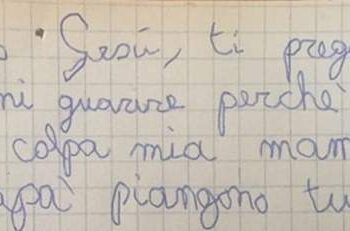 Gesù, ti preg
ni guarire perchè
colpa mia mam
apà piangono tu